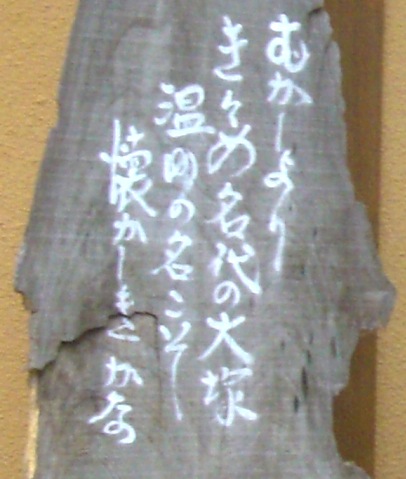 むかしより
きゝめ名代の大塚
温泉の名こそ
懐かしきかな